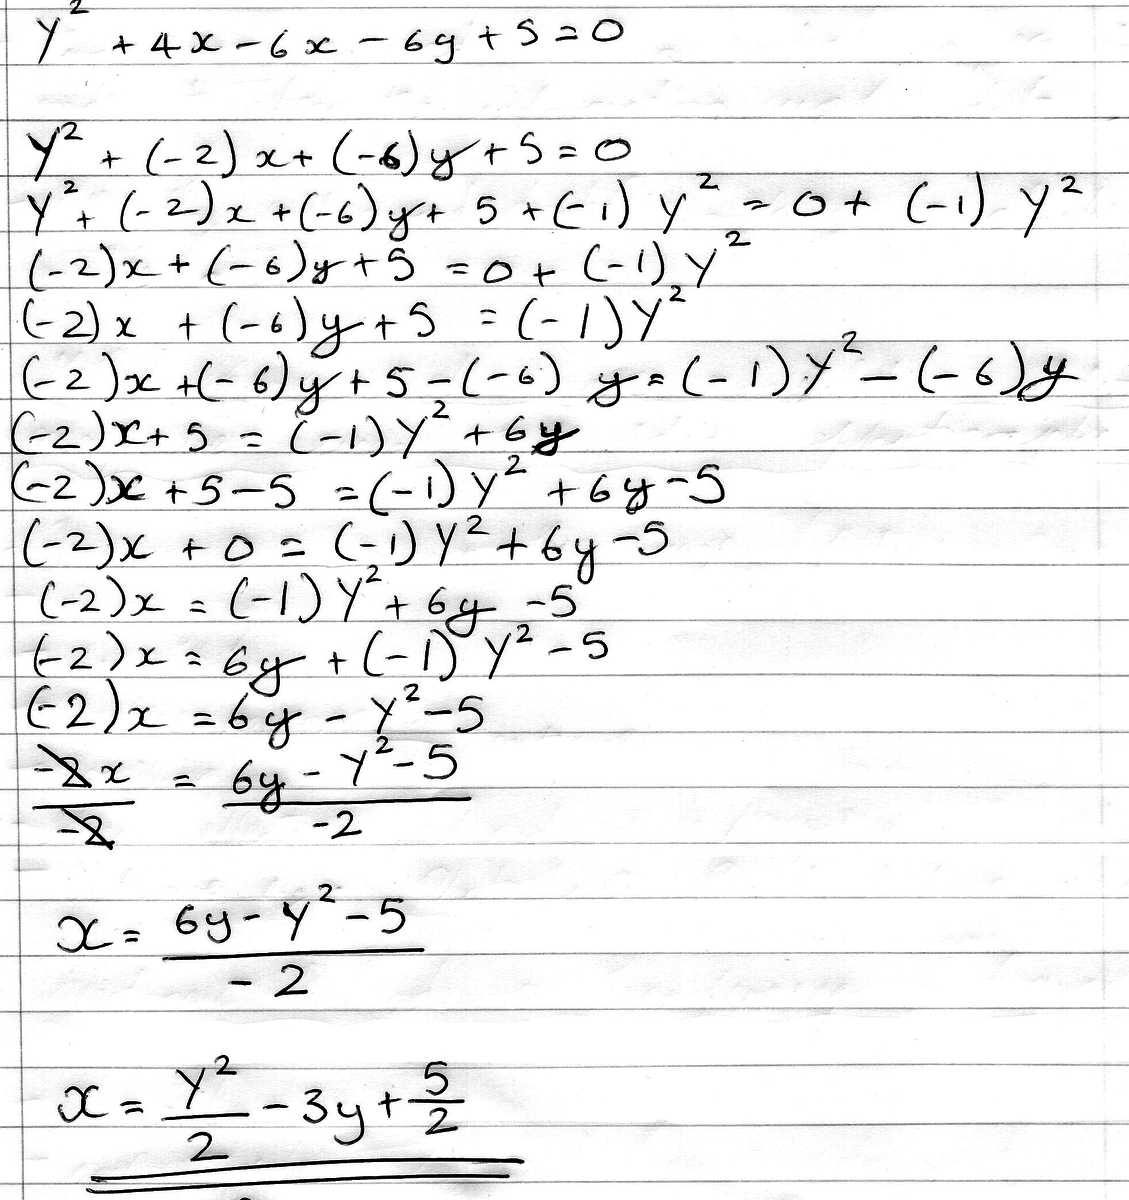 y² + 4x - 6x - 6y + 5 = 0
y² + (-2)x + (-6)y + 5 = 0
y² + (-2)x + (-6)y + 5 + (-1) y² = 0 + (-1) y²
(-2)x + (-6)y + 5 = 0 + (-1) y²
(-2)x + (-6)y + 5 = (-1) y²
(-2)x + (-6)y + 5 - (-6) y = (-1) y² - (-6)y
(-2)x + 5 = (-1) y² + 6y
(-2)x + 5 - 5 = (-1) y² + 6y - 5
(-2)x + 0 = (-1) y² + 6y - 5
(-2)x = (-1) y² + 6y - 5
(-2)x = 6y + (-1) y² - 5
(-2)x = 6y - y² - 5
-2x/-2 = (6y - y² - 5)/-2
x = (6y - y² - 5)/-2
x = y²/2 - 3y + 5/2